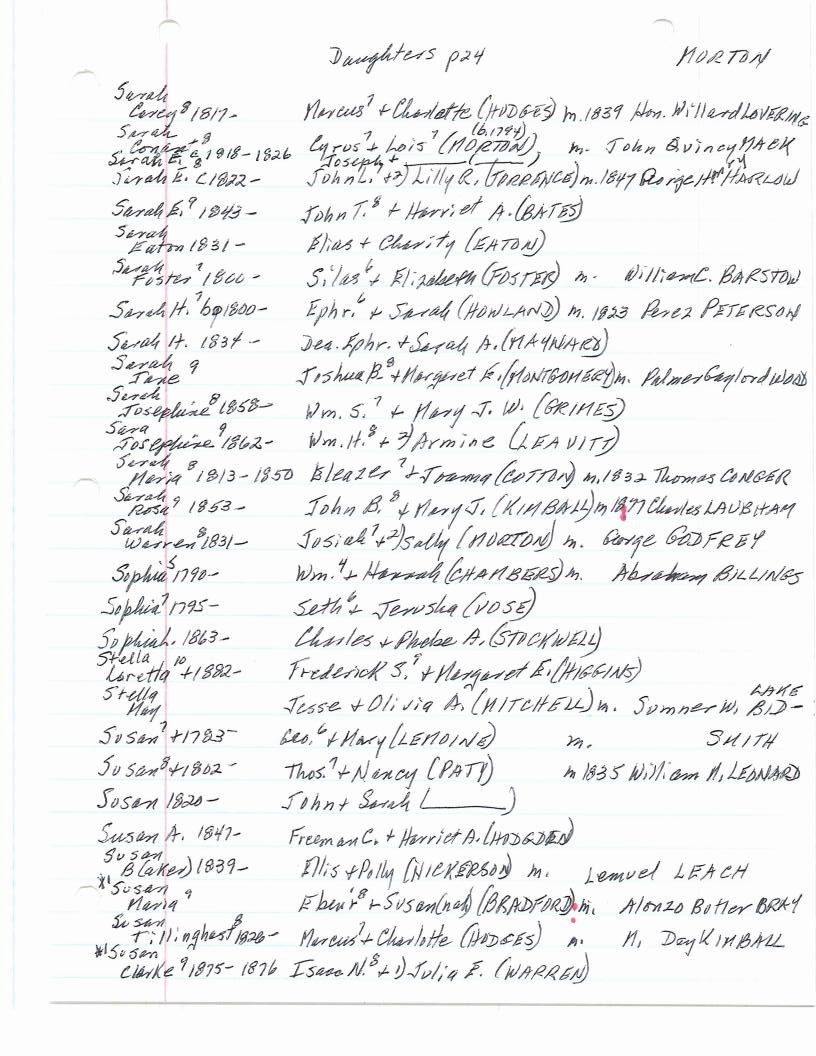 Daughters p24 MORTON
Sarah
Carey⁸ 1817- Marcus⁷ + Charlotte (HODGES) m. 1839 Hon. Willard LOVERING
Sarah (b.1794)
Conant⁸ Cyrus⁷ + Lois⁷ (MORTON), m. John Quincy MACK
Sarah E.⁸ c 1818-1826 Joseph + ______ (______),
Sarah E. c1822- John L.⁷ + 2) Lilly R. (TORRENCE) m. 1847 George HARLOW
Sarah E.⁹ 1843- John T.⁸ + Harriet A. (BATES)
Sarah
Eaton 1831- Elias + Charity (EATON)
Sarah
Foster⁷ 1800- Silas⁶ + Elizabeth (FOSTER) m. William C. BARSTOW
Sarah H.⁷ 1800- Ephr.⁶ + Sarah (HOWLAND) m. 1823 Perez PETERSON
Sarah H. 1834- Dea. Ephr. + Sarah A. (MAYNARD)
Sarah
Jane⁹ Joshua B.⁸ + Margaret E. (MONTGOMERY) m. Palmer Gaylord WOOD
Sarah
Josephine⁸ 1858- Wm. S.⁷ + Mary J. W. (GRIMES)
Sara
Josephine⁹ 1862- Wm. H.⁸ + 2) Armine (LEAVITT)
Sarah
Maria⁸ 1813-1850 Eleazer⁷ + Joanna (COTTON) m. 1832 Thomas CONGER
Sarah
Rosa⁹ 1853- John B.⁸ + Mary J. (KIMBALL) m 1877 Charles LAUBHAM
Sarah
Warren⁸ 1831- Josiah⁷ + 2) Sally (MORTON) m. George GODFREY
Sophia⁵ 1790- Wm.⁴ + Hannah (CHAMBERS) m. Abraham BILLINGS
Sophia⁷ 1795- Seth⁶ + Jerusha (VOSE)
Sophia L. 1863- Charles + Phebe A. (STOCKWELL)
Stella
Loretta¹⁰ +1882- Frederick S.⁹ + Margaret E. (HIGGINS)
Stella LAKE
May Jesse + Olivia A. (MITCHELL) m. Sumner W. BID-
Susan⁷ +1783- Geo.⁶ + Mary (LEMOINE) m. SMITH
Susan⁸ +1802- Thos.⁷ + Nancy (PATY) m 1835 William N. LEONARD
Susan 1820- John + Sarah (______)
Susan A. 1847- Freeman C. + Harriet A. (HODGDEN)
Susan
B(aker) 1839- Ellis + Polly (NICKERSON) m. Lemuel LEACH
*¹ Susan
Maria⁹ Eben'r⁸ + Susan(nah) (BRADFORD) m. Alonzo Butler BRAY
Susan
Tillinghast⁸ 1826- Marcus⁷ + Charlotte (HODGES) m. M. Day KIMBALL
*¹ Susan
Clarke⁹ 1875-1876 Isaac N.⁸ + 1) Julia E. (WARREN)